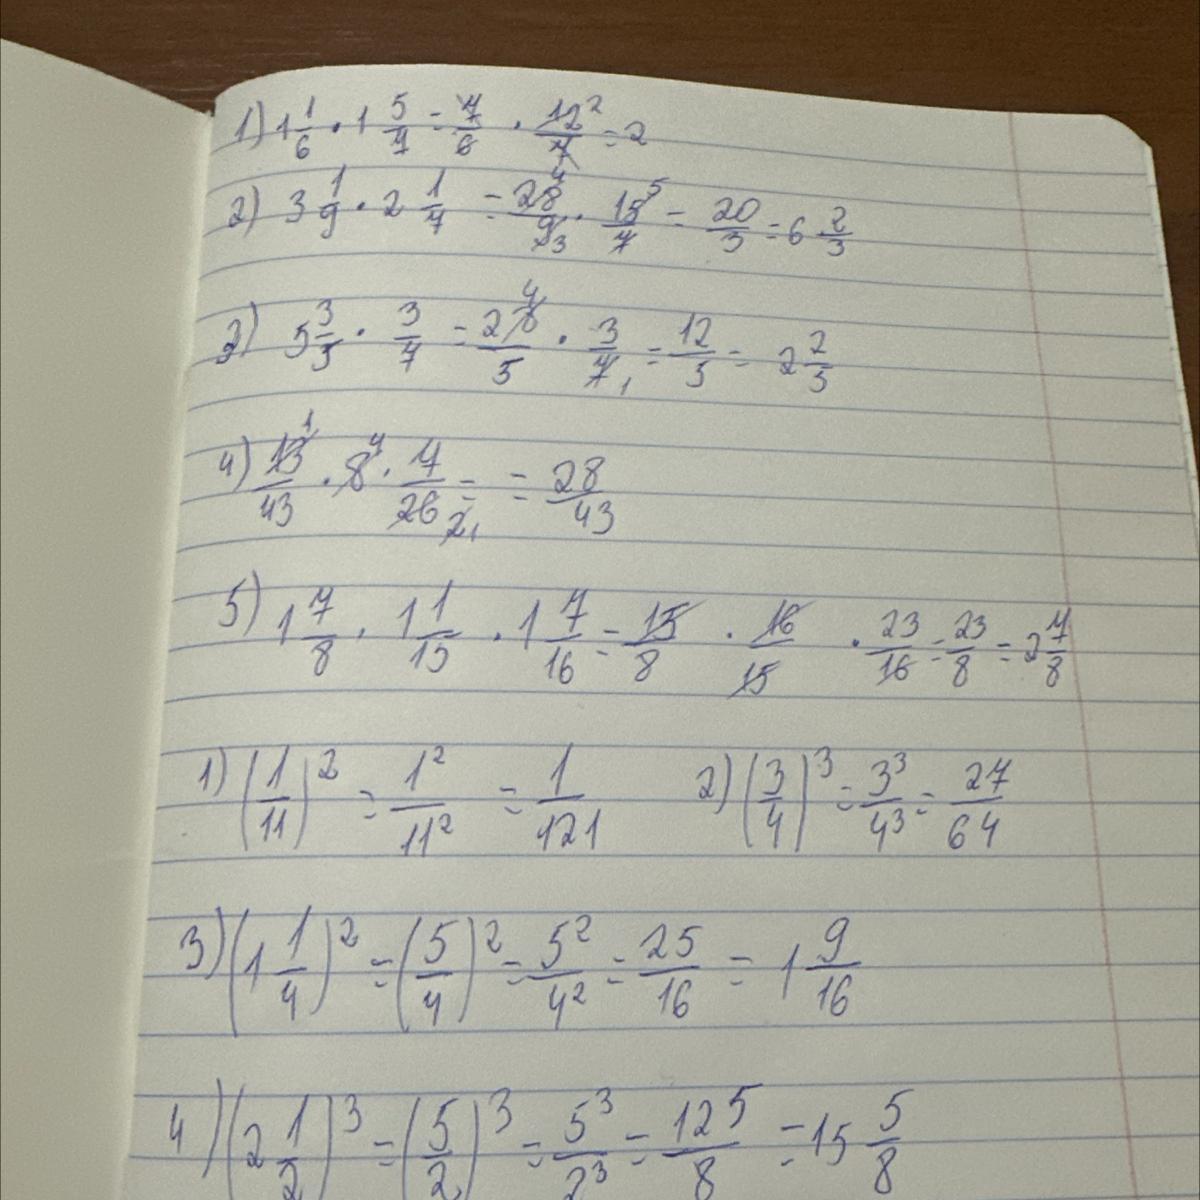 1) 1 1/6 · 1 5/7 = 7/6 · 12²/7 = 2
2) 3 1/9 · 2 1/7 = 28⁴/9₃ · 15⁵/7 = 20/3 = 6 2/3
3) 5 3/5 · 3/7 = 28⁴/5 · 3/7₁ = 12/5 = 2 2/5
4) 13¹/43 · 8⁴ · 7/26 ₂₁ = = 28/43
5) 1 7/8 · 1 1/15 · 1 7/16 = 15/8 · 16/15 · 23/16 = 23/8 = 2 7/8
1) (1/11)² = 1²/11² = 1/121 2) (3/4)³ = 3³/4³ = 27/64
3) (1 1/4)² = (5/4)² = 5²/4² = 25/16 = 1 9/16
4) (2 1/2)³ = (5/2)³ = 5³/2³ = 125/8 = 15 5/8